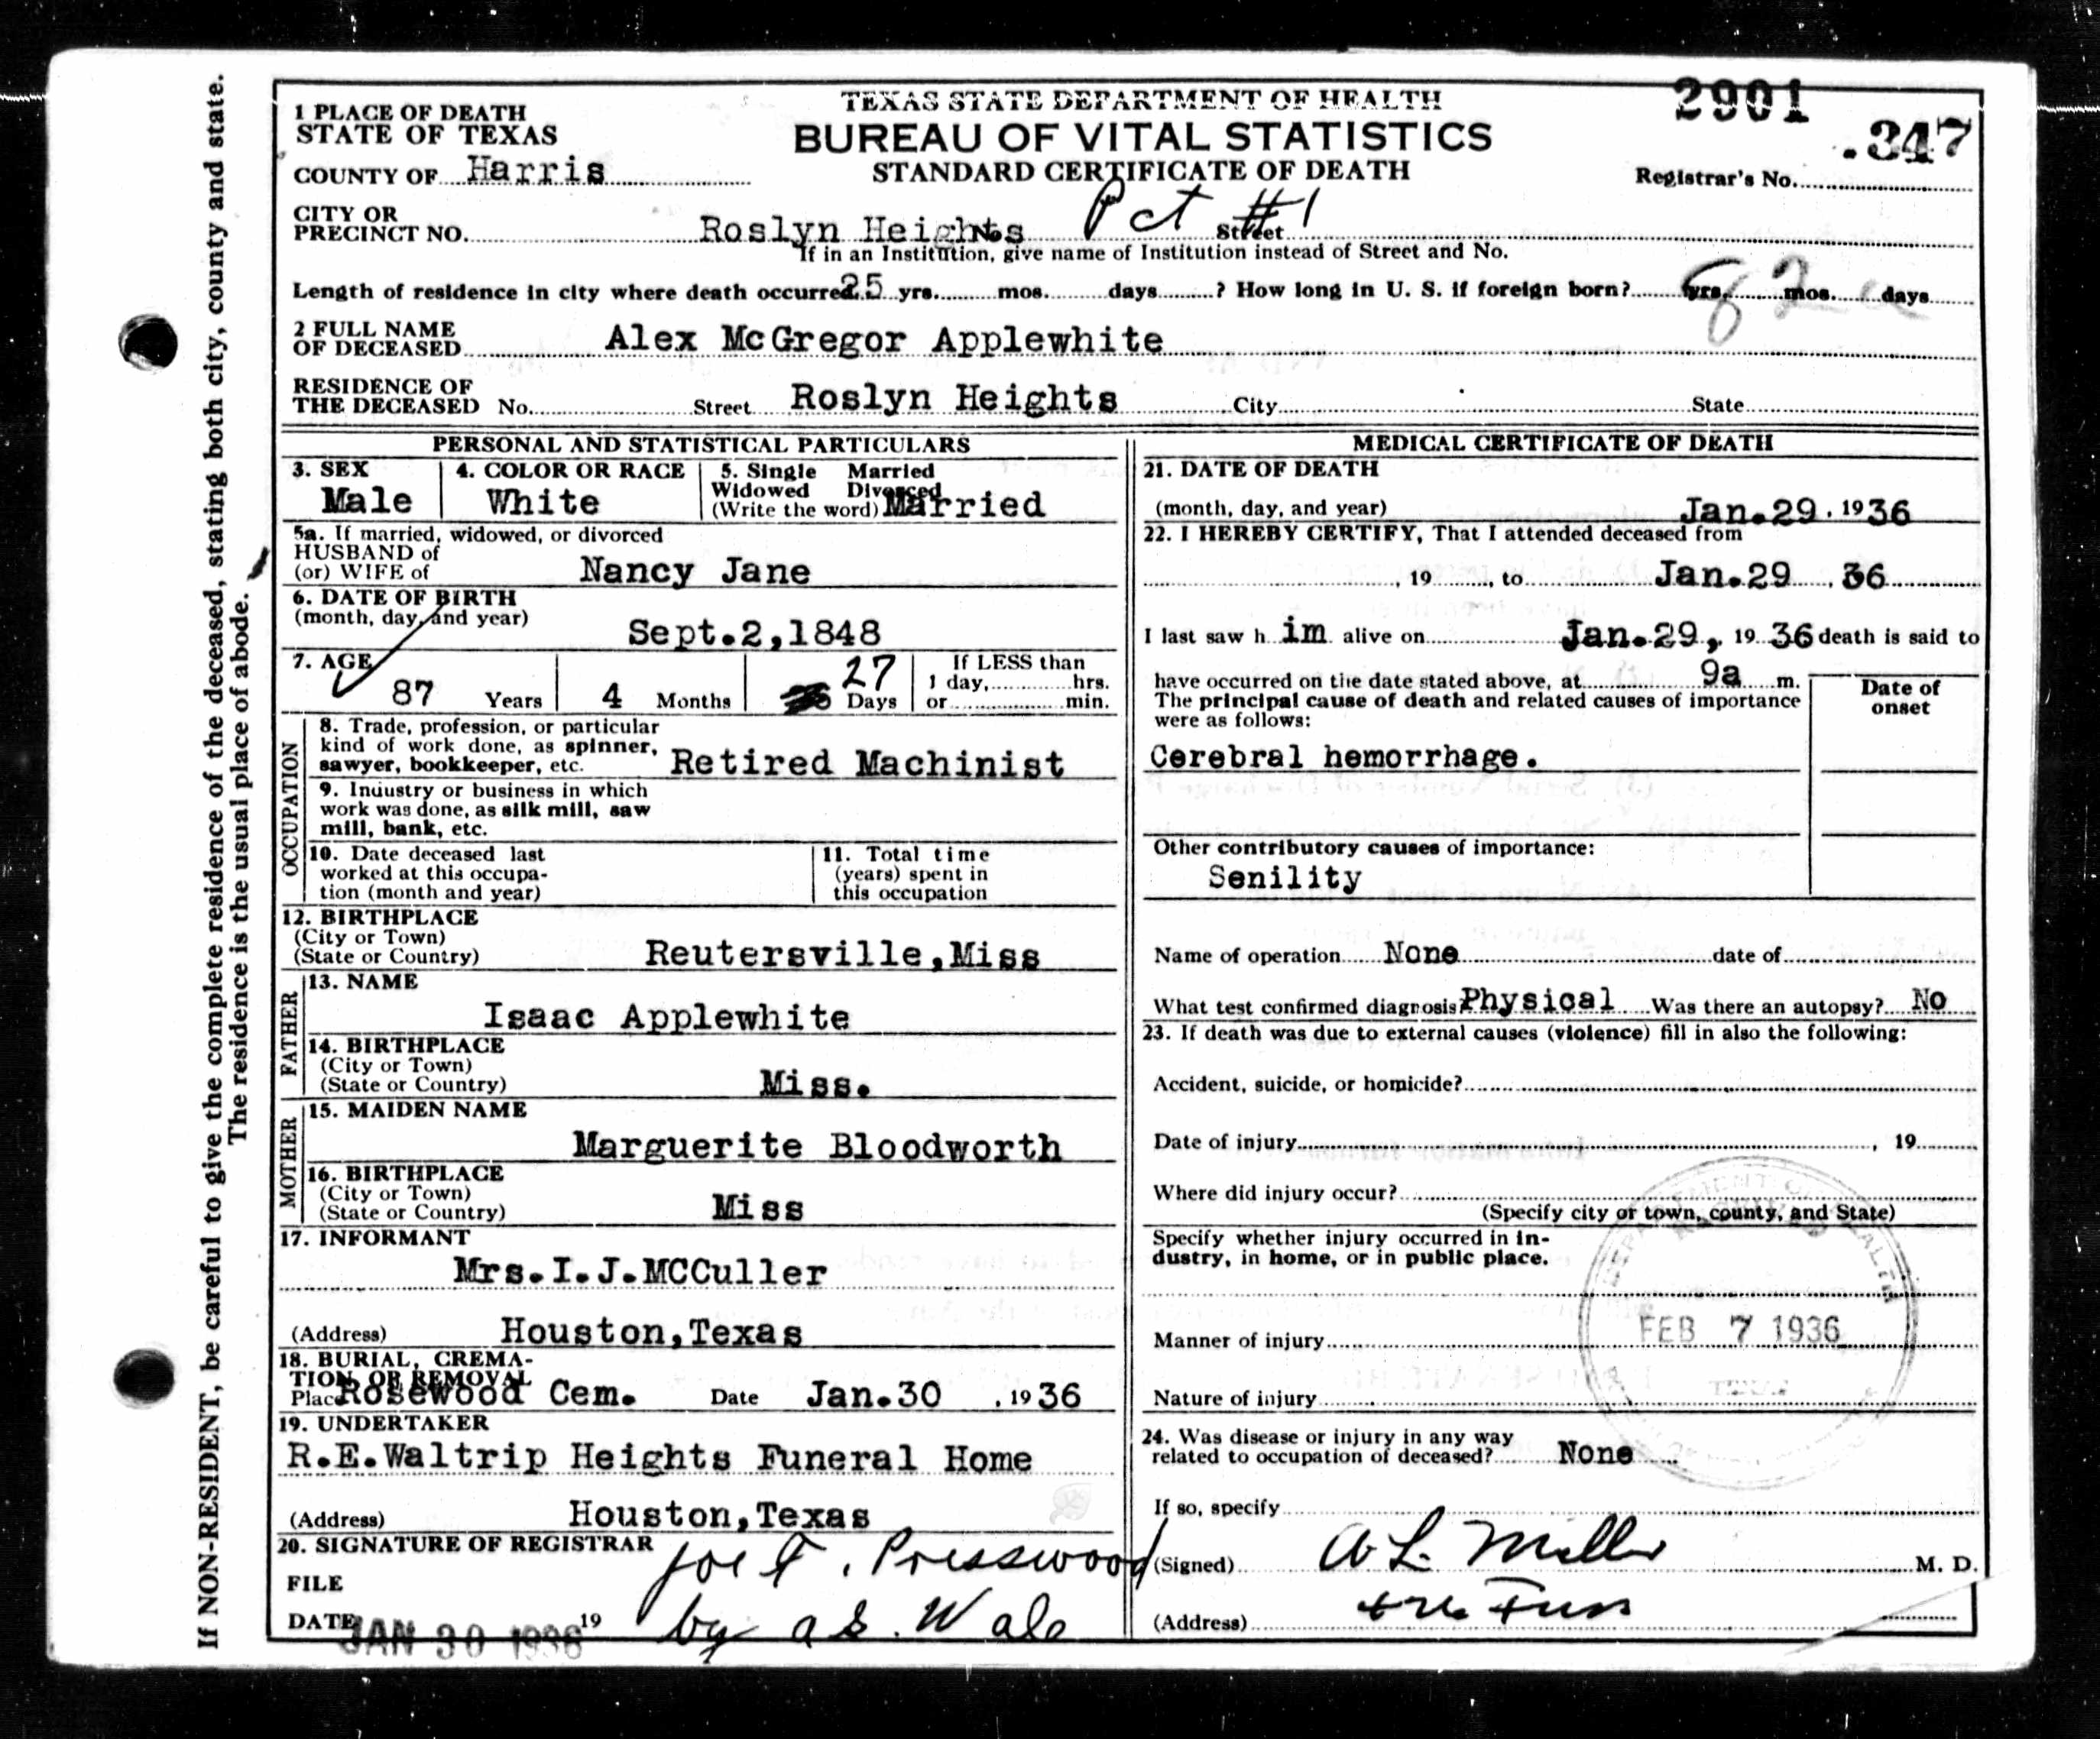 If NON-RESIDENT, be careful to give the complete residence of the deceased, stating both city, county and state.
The residence is the usual place of abode.
1 PLACE OF DEATH
STATE OF TEXAS
COUNTY OF Harris
TEXAS STATE DEPARTMENT OF HEALTH
BUREAU OF VITAL STATISTICS
STANDARD CERTIFICATE OF DEATH
2901
.347
Registrar's No.
CITY OR
PRECINCT NO. Roslyn Heights Pct #1 Street
If in an Institution, give name of Institution instead of Street and No.
Length of residence in city where death occurred 25 yrs. mos. days ? How long in U. S. if foreign born? yrs. mos. days
82a
2 FULL NAME
OF DECEASED Alex McGregor Applewhite
RESIDENCE OF
THE DECEASED No. Street Roslyn Heights City State
PERSONAL AND STATISTICAL PARTICULARS
3. SEX
Male
4. COLOR OR RACE
White
5. Single Married
Widowed Divorced
(Write the word) Married
5a. If married, widowed, or divorced
HUSBAND of
(or) WIFE of Nancy Jane
6. DATE OF BIRTH
(month, day, and year) Sept.2,1848
7. AGE
87 Years 4 Months 27 Days
If LESS than
1 day, hrs.
or min.
OCCUPATION
8. Trade, profession, or particular
kind of work done, as spinner,
sawyer, bookkeeper, etc. Retired Machinist
9. Industry or business in which
work was done, as silk mill, saw
mill, bank, etc.
10. Date deceased last
worked at this occupa-
tion (month and year)
11. Total time
(years) spent in
this occupation
12. BIRTHPLACE
(City or Town)
(State or Country) Reutersville,Miss
FATHER
13. NAME
Isaac Applewhite
14. BIRTHPLACE
(City or Town)
(State or Country) Miss.
MOTHER
15. MAIDEN NAME
Marguerite Bloodworth
16. BIRTHPLACE
(City or Town)
(State or Country) Miss
17. INFORMANT
Mrs.I.J.MCCuller
(Address) Houston,Texas
18. BURIAL, CREMA-
TION, OR REMOVAL
Place Rosewood Cem. Date Jan.30 , 1936
19. UNDERTAKER
R.E.Waltrip Heights Funeral Home
(Address) Houston,Texas
20. SIGNATURE OF REGISTRAR
FILE
DATE JAN 30 1936 19
Joe F. Presswood
by
MEDICAL CERTIFICATE OF DEATH
21. DATE OF DEATH
(month, day, and year) Jan.29 , 1936
22. I HEREBY CERTIFY, That I attended deceased from
, 19 , to Jan.29 , 36
I last saw h im alive on Jan.29, 19 36 death is said to
have occurred on the date stated above, at 9a m.
The principal cause of death and related causes of importance
were as follows:
Date of
onset
Cerebral hemorrhage.
Other contributory causes of importance:
Senility
Name of operation None date of
What test confirmed diagnosis? Physical Was there an autopsy? No
23. If death was due to external causes (violence) fill in also the following:
Accident, suicide, or homicide?
Date of injury , 19
Where did injury occur?
(Specify city or town, county, and State)
Specify whether injury occurred in in-
dustry, in home, or in public place.
Manner of injury
Nature of injury
FEB 7 1936
TEXAS
24. Was disease or injury in any way
related to occupation of deceased? None
If so, specify
(Signed) Miller M. D.
(Address)